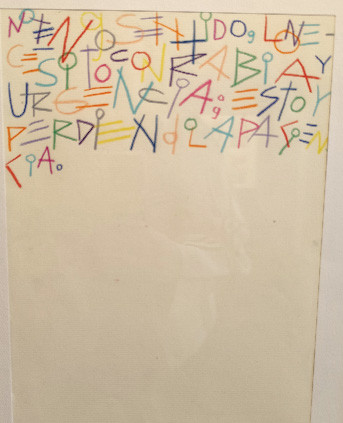 NO TENgO SENTIDO, LO NE-
CESITO CON RABIA Y
URGENCIA, ESTOY
PERDIENdO LA PACIEN
CIA.